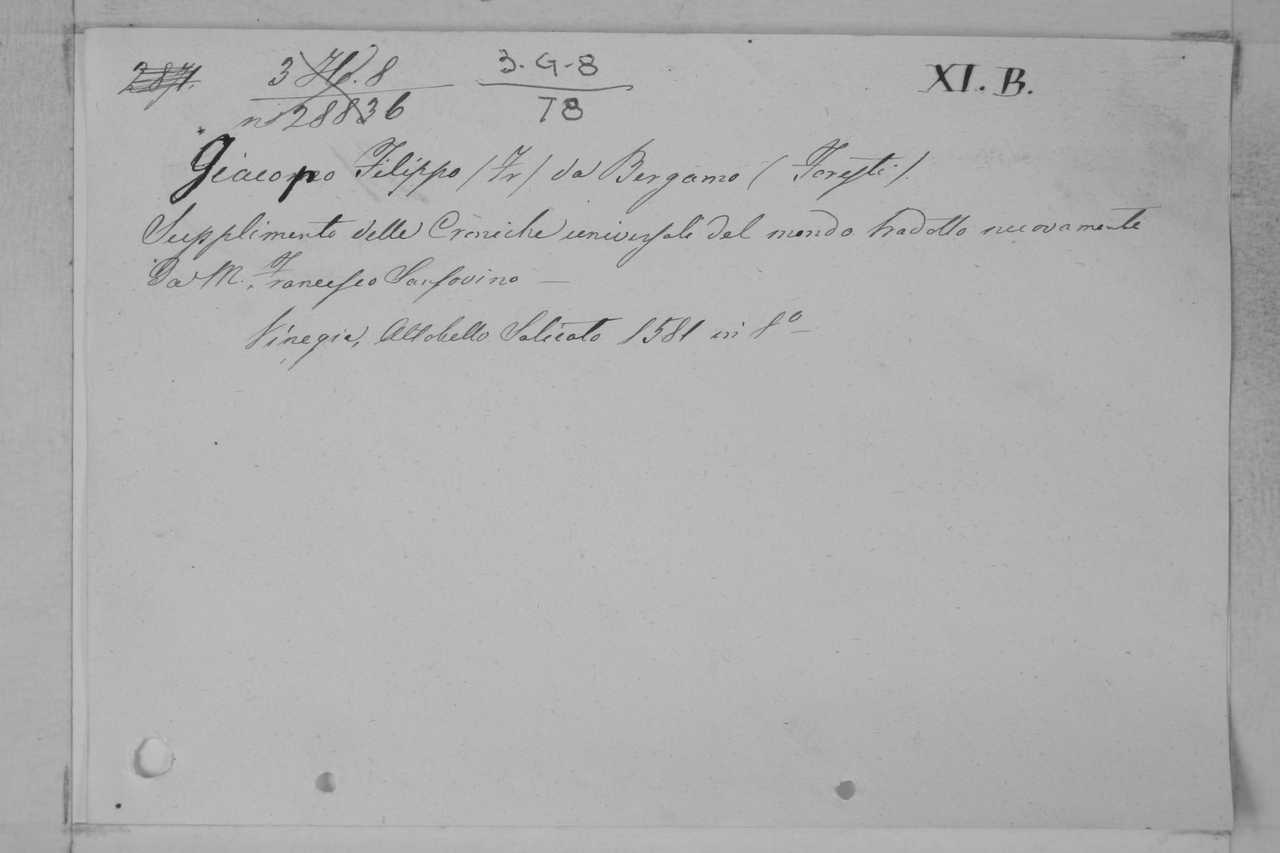 287. 3 H. 8 3-G-8 XI. B.
nº 28836 78
Giacomo Filippo (Fr) da Bergamo (Foresti).
Supplimento delle Croniche universali del mondo tradotto nuovamente
Da M. Francesco Sansovino —
Vinegia, Altobello Salicato 1581 in 8º